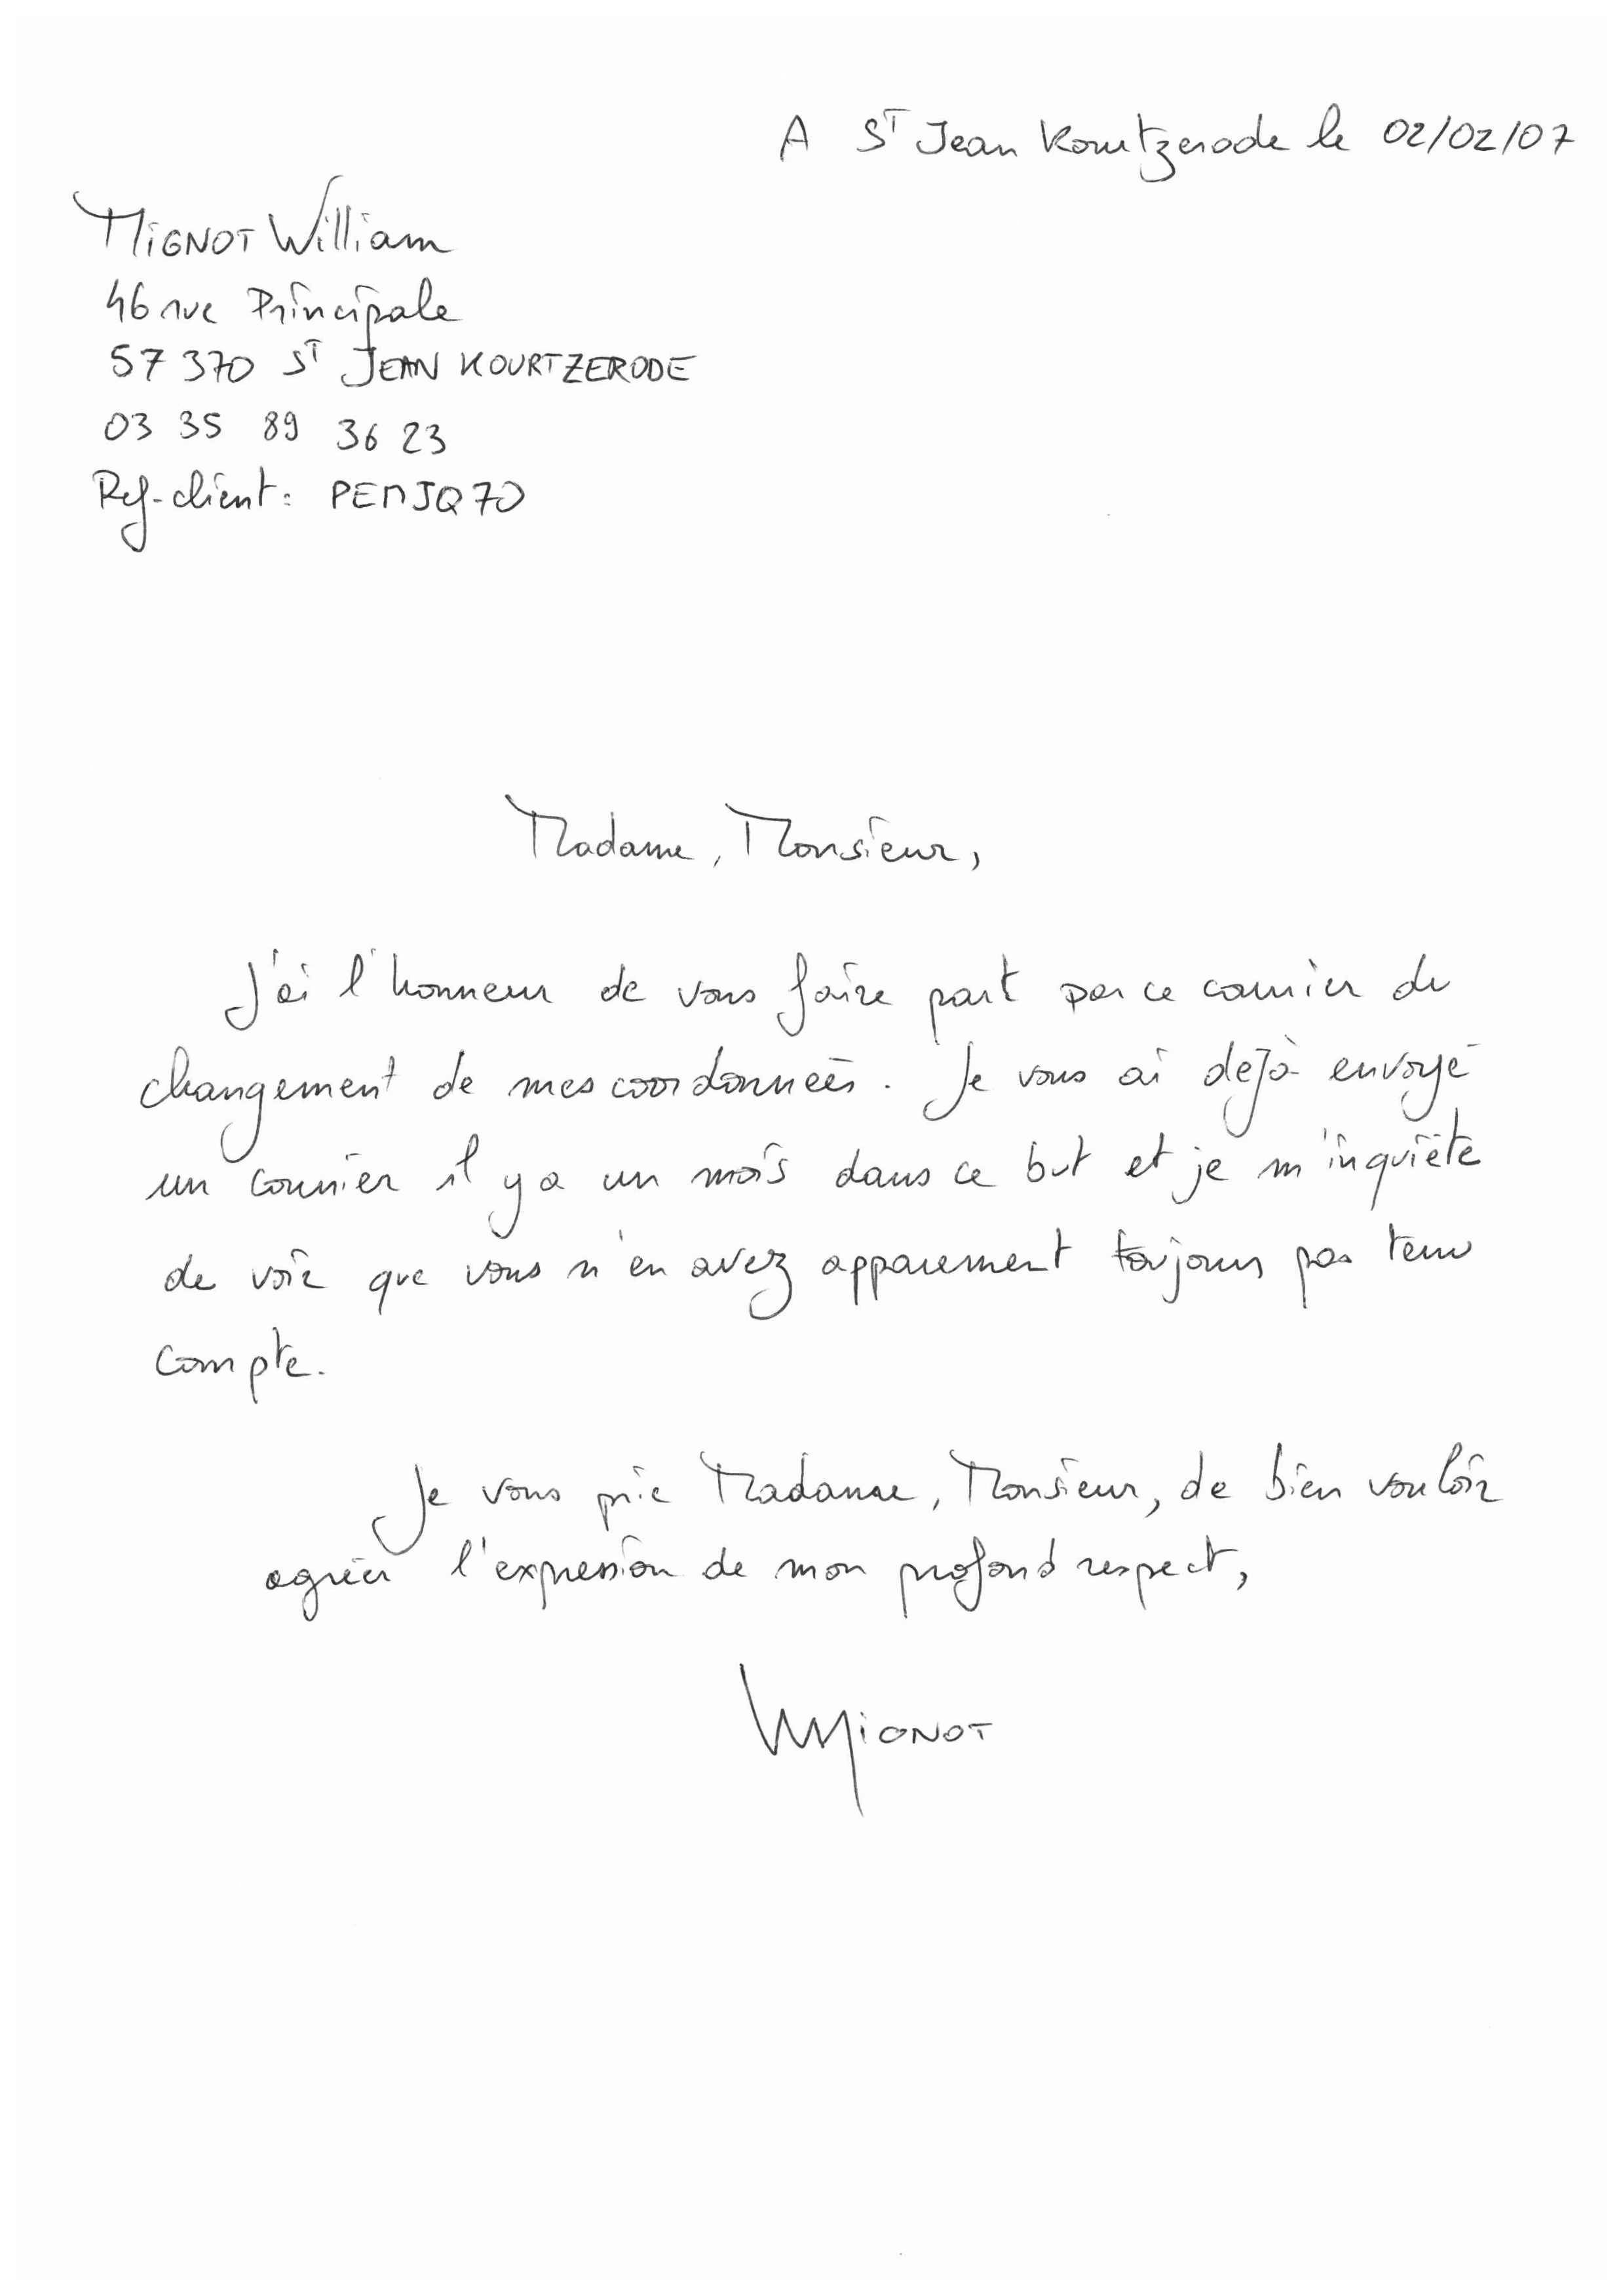 A St Jean Kourtzerode le 02/02/07
MIGNOT William
46 rue Principale
57 370 St JEAN KOURTZERODE
03 35 89 36 23
Ref-client : PEMJQ70
Madame, Monsieur,
J'ai l'honneur de vous faire part par ce courrier du
changement de mes coordonnées. Je vous ai déjà envoyé
un courrier il y a un mois dans ce but et je m'inquiète
de voir que vous n'en avez apparement toujours pas tenu
compte.
Je vous prie Madame, Monsieur, de bien vouloir
agréer l'expression de mon profond respect,
WMIGNOT